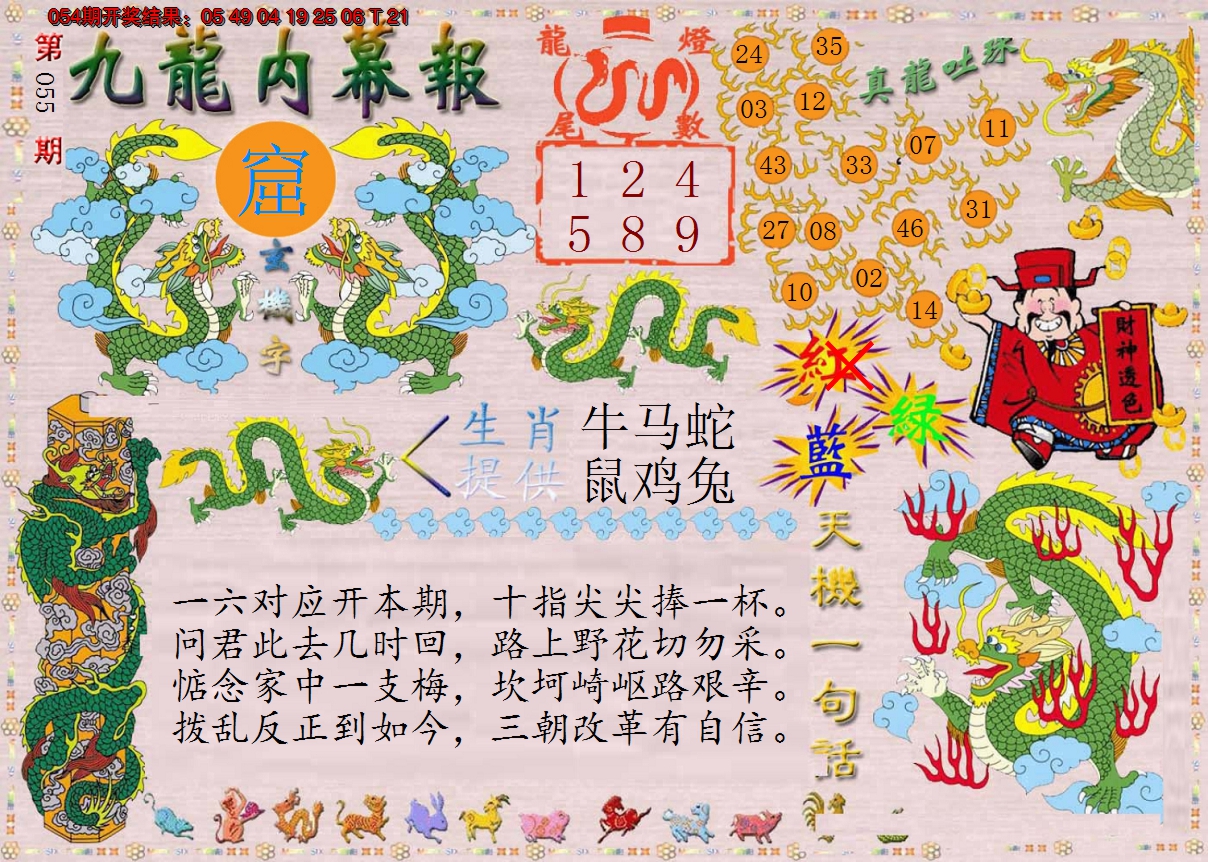 054期开奖结果：05 49 04 19 25 06 T 21
第055期
九龍内幕報
窟
玄機字
龍燈尾數
1 2 4
5 8 9
真龍吐珠
24 35
03 12
43 33 07 11
27 08 46 31
10 02 14
紅
綠
藍
財神透色
生肖提供
牛马蛇
鼠鸡兔
天機一句话
一六对应开本期，十指尖尖捧一杯。
问君此去几时回，路上野花切勿采。
惦念家中一支梅，坎坷崎岖路艰辛。
拨乱反正到如今，三朝改革有自信。